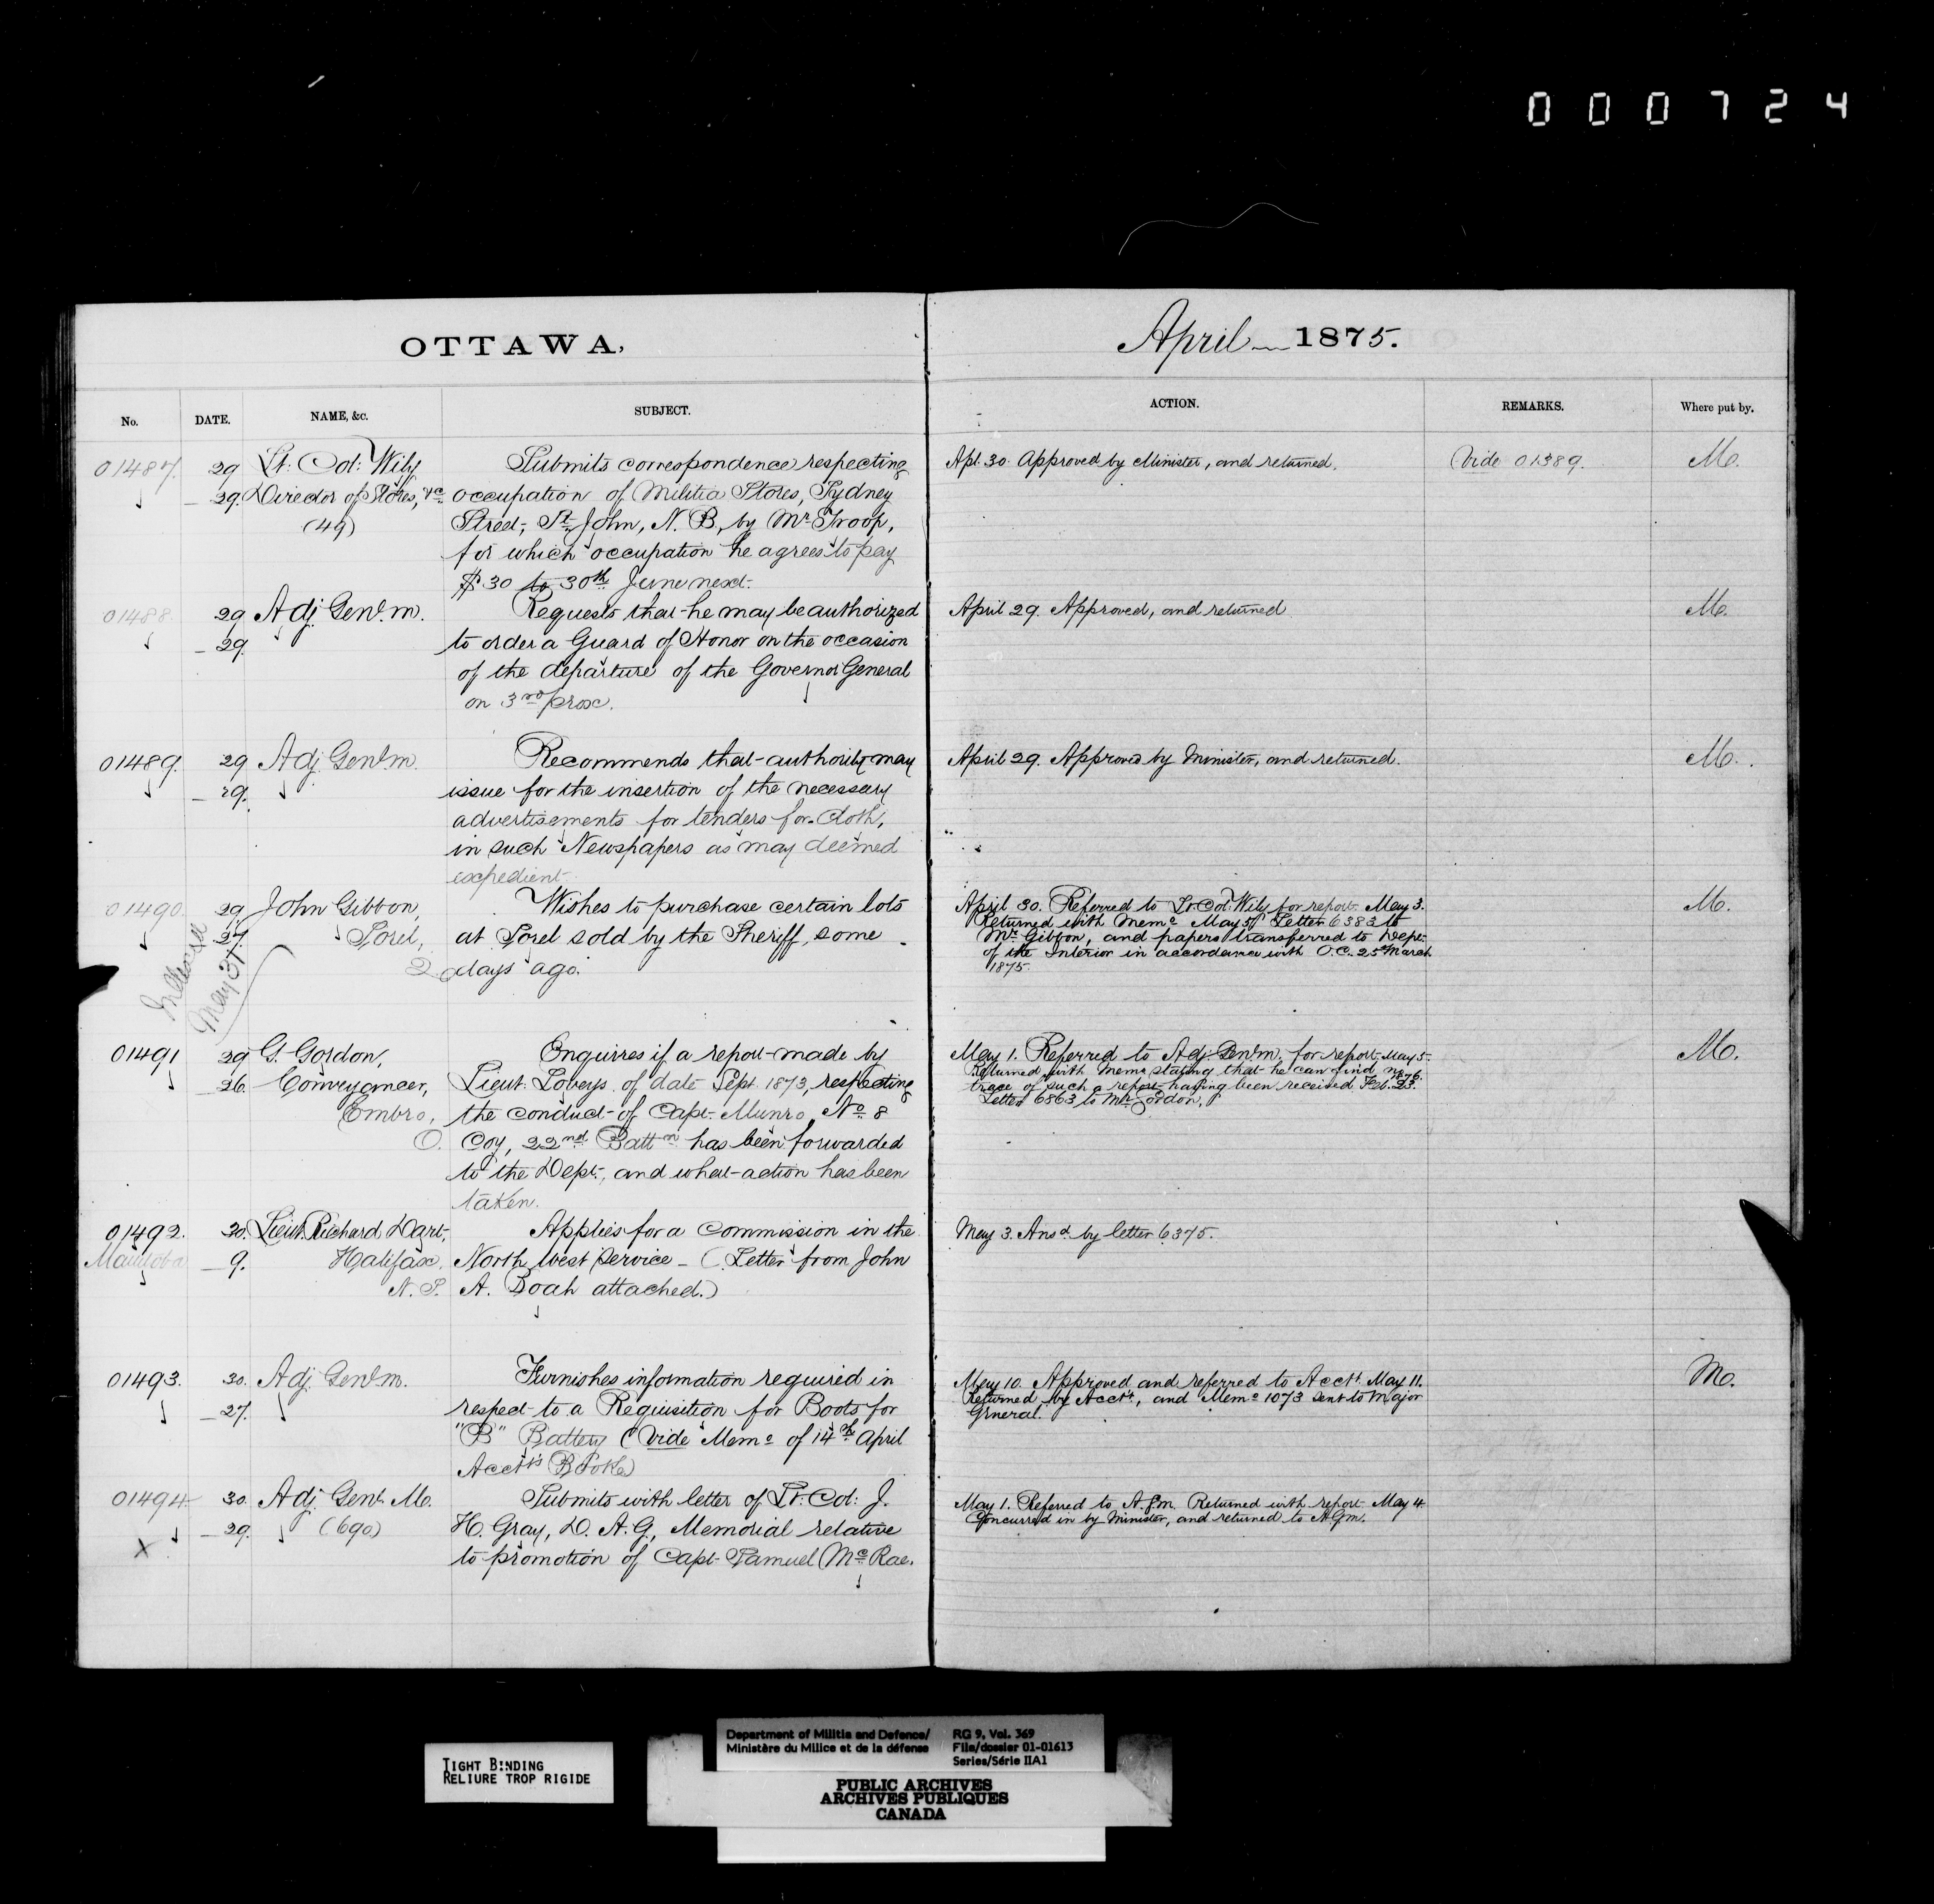 0 0 0 7 2 4
OTTAWA,
No. DATE. NAME, &c. SUBJECT.
01487. 29 Lt: Col: Wily Submits correspondence respecting
29. Director of Stores, &c occupation of Militia Stores, Sydney
(49) Street, St John, N. B, by Mr Troop,
for which occupation he agrees to pay
$30 to 30th June next.
01488. 29 Adj. Genl. m. Requests that he may be authorized
29 to order a Guard of Honor on the occasion
of the departure of the Governor General
on 3rd prox.
01489. 29 Adj. Genl. m. Recommends that authority may
29. issue for the insertion of the necessary
advertisements for tenders for cloth,
in such Newspapers as may deemed
expedient.
01490. 29 John Gibbon, Wishes to purchase certain lots
27. Sorel, at Sorel sold by the Sheriff, some
2 days ago.
May 31
01491 29 G. Gordon, Enquires if a report made by
26. Conveyancer, Lieut. Loveys, of date Sept. 1873, respecting
Embro, the conduct of Capt. Munro, No 8
O. Coy, 22nd Battn has been forwarded
to the Dept., and what action has been
taken.
01492. 30. Lieut. Richard Dart, Applies for a commission in the
Manitoba 9. Halifax, North West Service – (Letter from John
N. S. A. Doah attached.)
01493. 30. Adj. Genl. m. Furnishes information required in
27. respect to a Requisition for Boots for
"B" Battery (Vide Memo of 14th April
Acct's Books)
01494 30. Adj. Genl. M. Submits with letter of Lt: Col: J.
X 29. (690) H. Gray, D. A. G., Memorial relative
to promotion of Capt. Samuel McRae.
April 1875.
ACTION. REMARKS. Where put by.
Apl. 30. Approved by Minister, and returned. Vide 01389. M.
April 29. Approved, and returned M.
April 29. Approved by Minister, and returned. M.
April 30. Referred to Lt. Col. Wily for report. May 3. M.
Returned with Memo May 5 Letter 6383 to
Mr Gibbon, and papers transferred to Dept.
of the Interior in accordance with O.C. 25th March
1875.
May 1. Referred to Adj. Genl. m. for report. May 5. M.
Returned with Memo stating that he can find no
trace of such a report having been received. Feb. 23. 1876.
Letter 6863 to Mr Gordon.
May 3. Ansd by letter 6375.
May 10. Approved and referred to Acctt. May 11. M.
Returned by Acctt., and Memo 1073 sent to Major
General.
May 1. Referred to A.G.m. Returned with report. May 4
Concurred in by Minister, and returned to A.G.m.
TIGHT BINDING
RELIURE TROP RIGIDE
Department of Militia and Defence/ RG 9, Vol. 369
Ministère du Milice et de la défense File/dossier 01-01613
Series/Série IIA1
PUBLIC ARCHIVES
ARCHIVES PUBLIQUES
CANADA